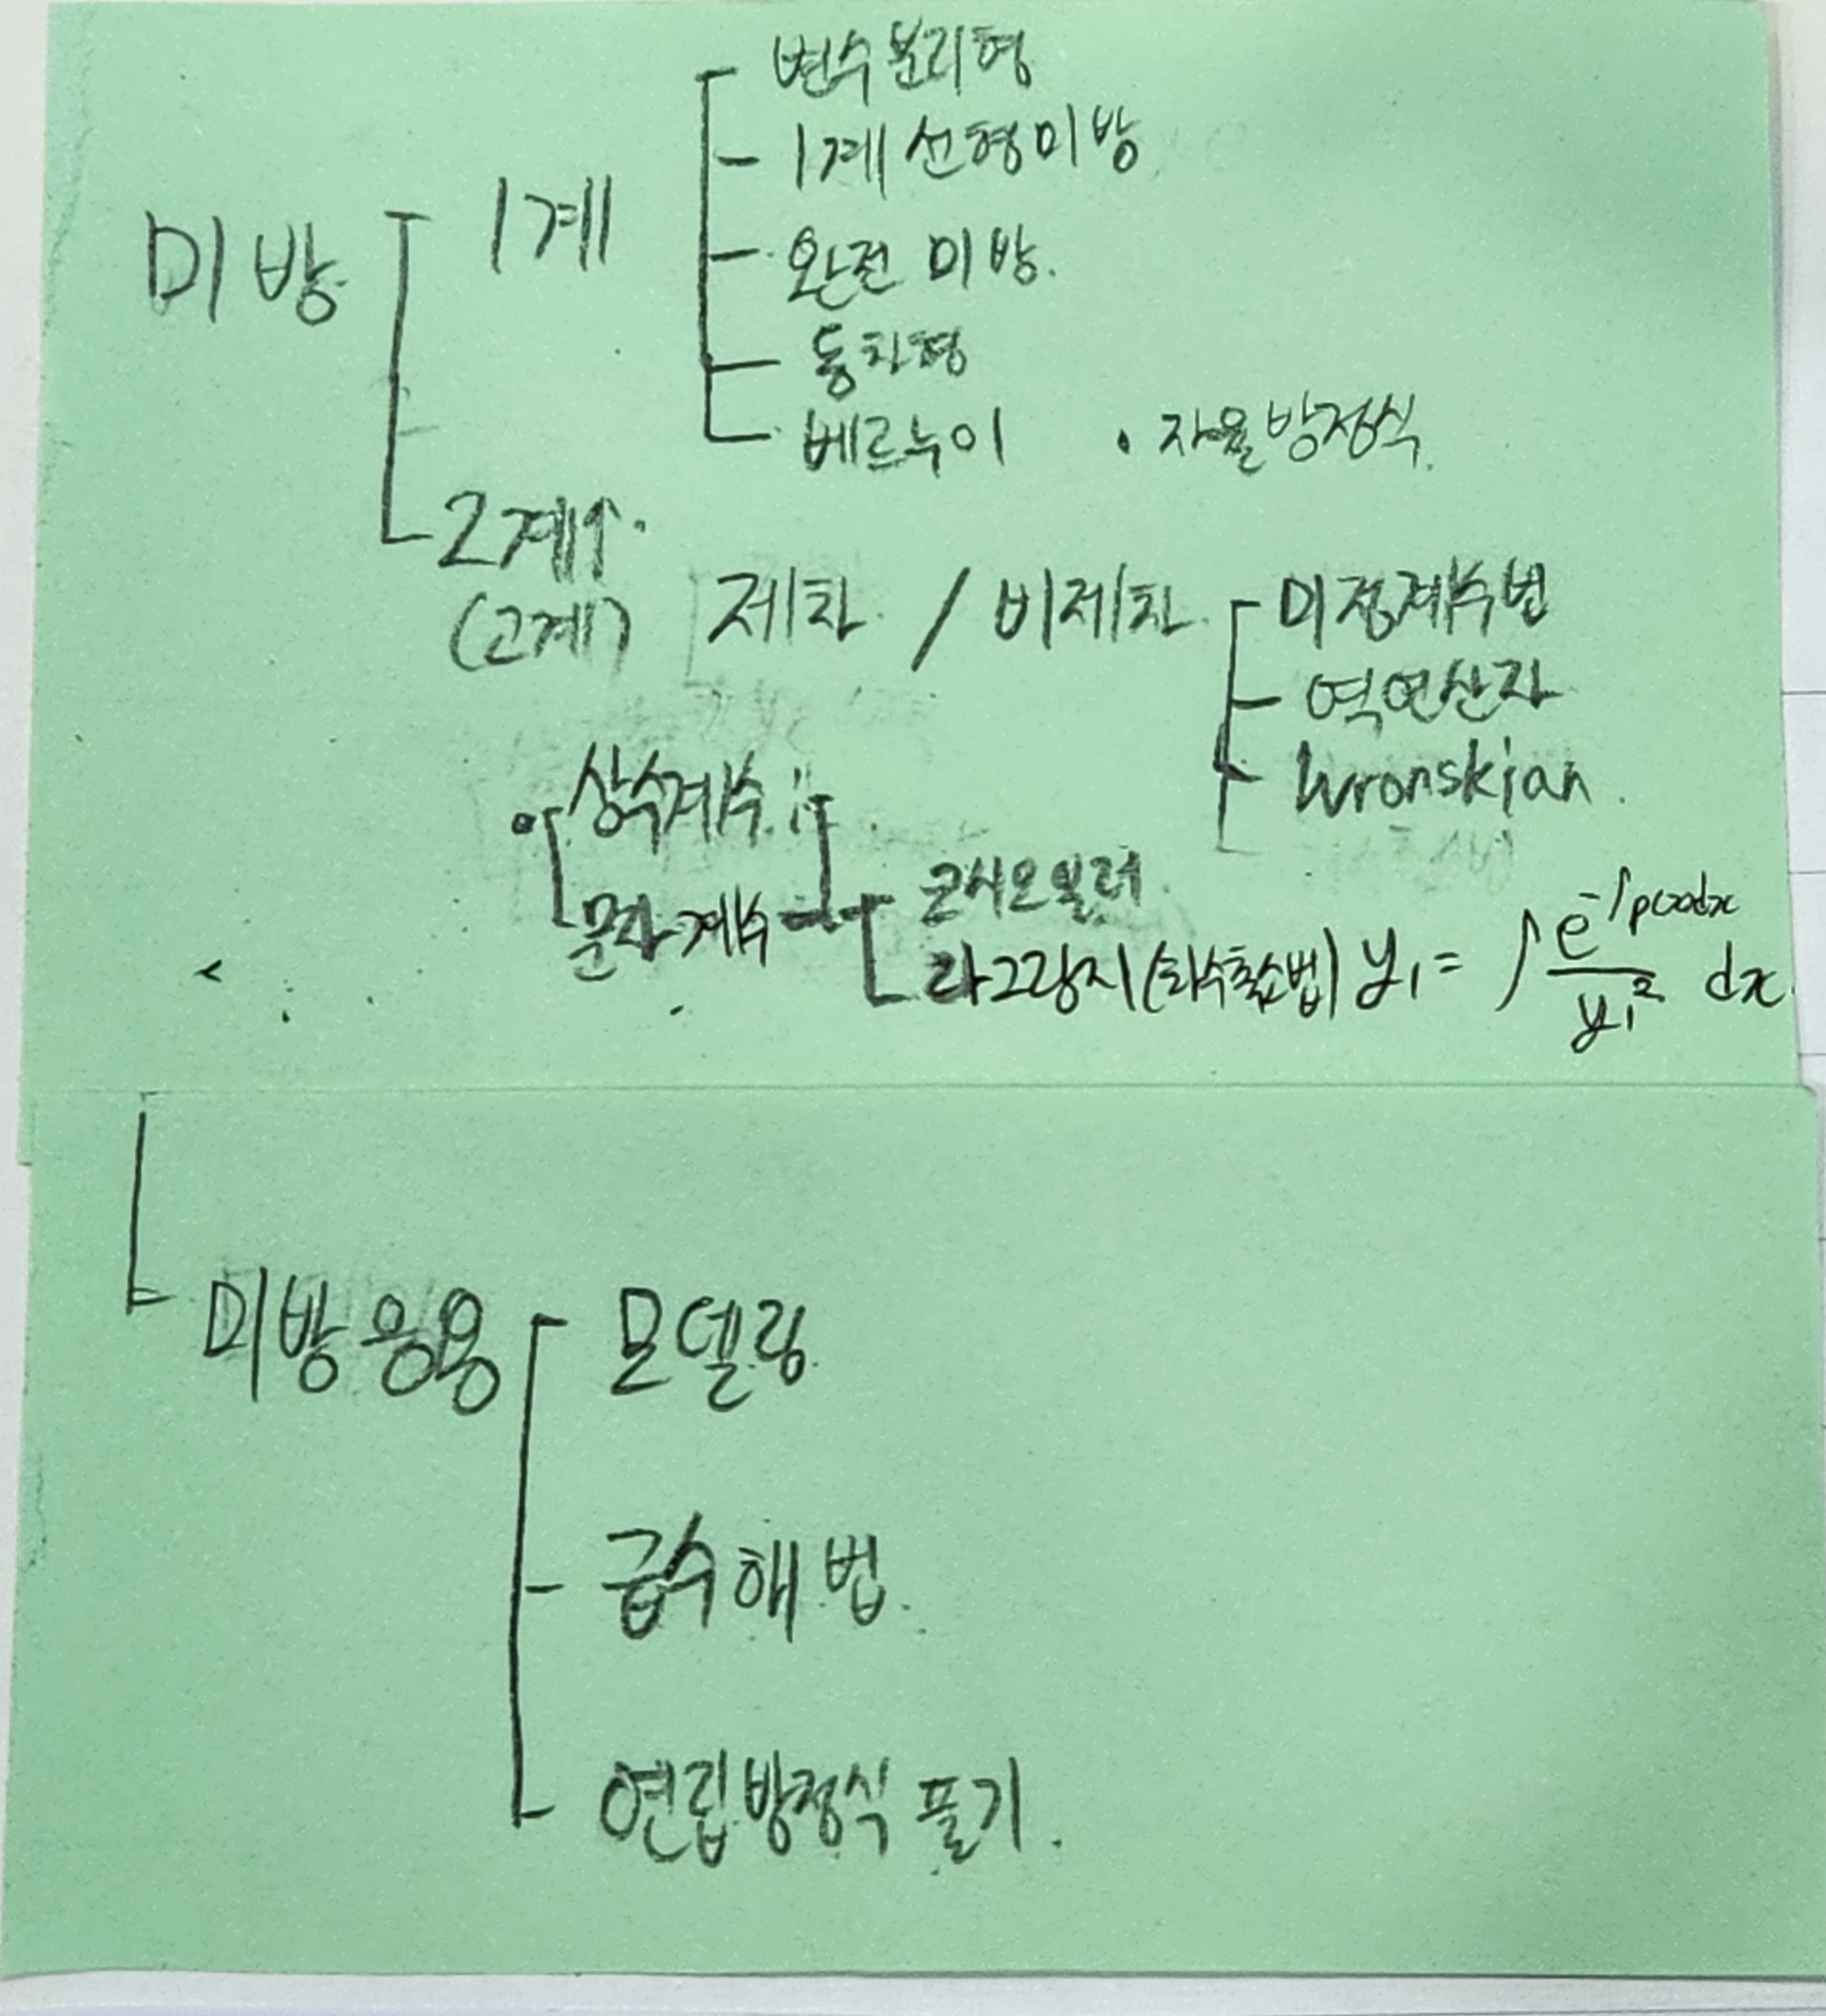 변수분리형
1계 선형미방
미방 1계
완전 미방.
동차형
베르누이 • 자율방정식.
2계↑.
(고계) 제차 / 비제차 미정계수법
역연산자
Wronskian.
• 상수계수
문자계수
코시오일러
라그랑지 (차수축소법) y₁ = ∫ e^{-∫p(x)dx} / y₁² dx
미방응용 모델링
급수해법.
연립방정식 풀기.